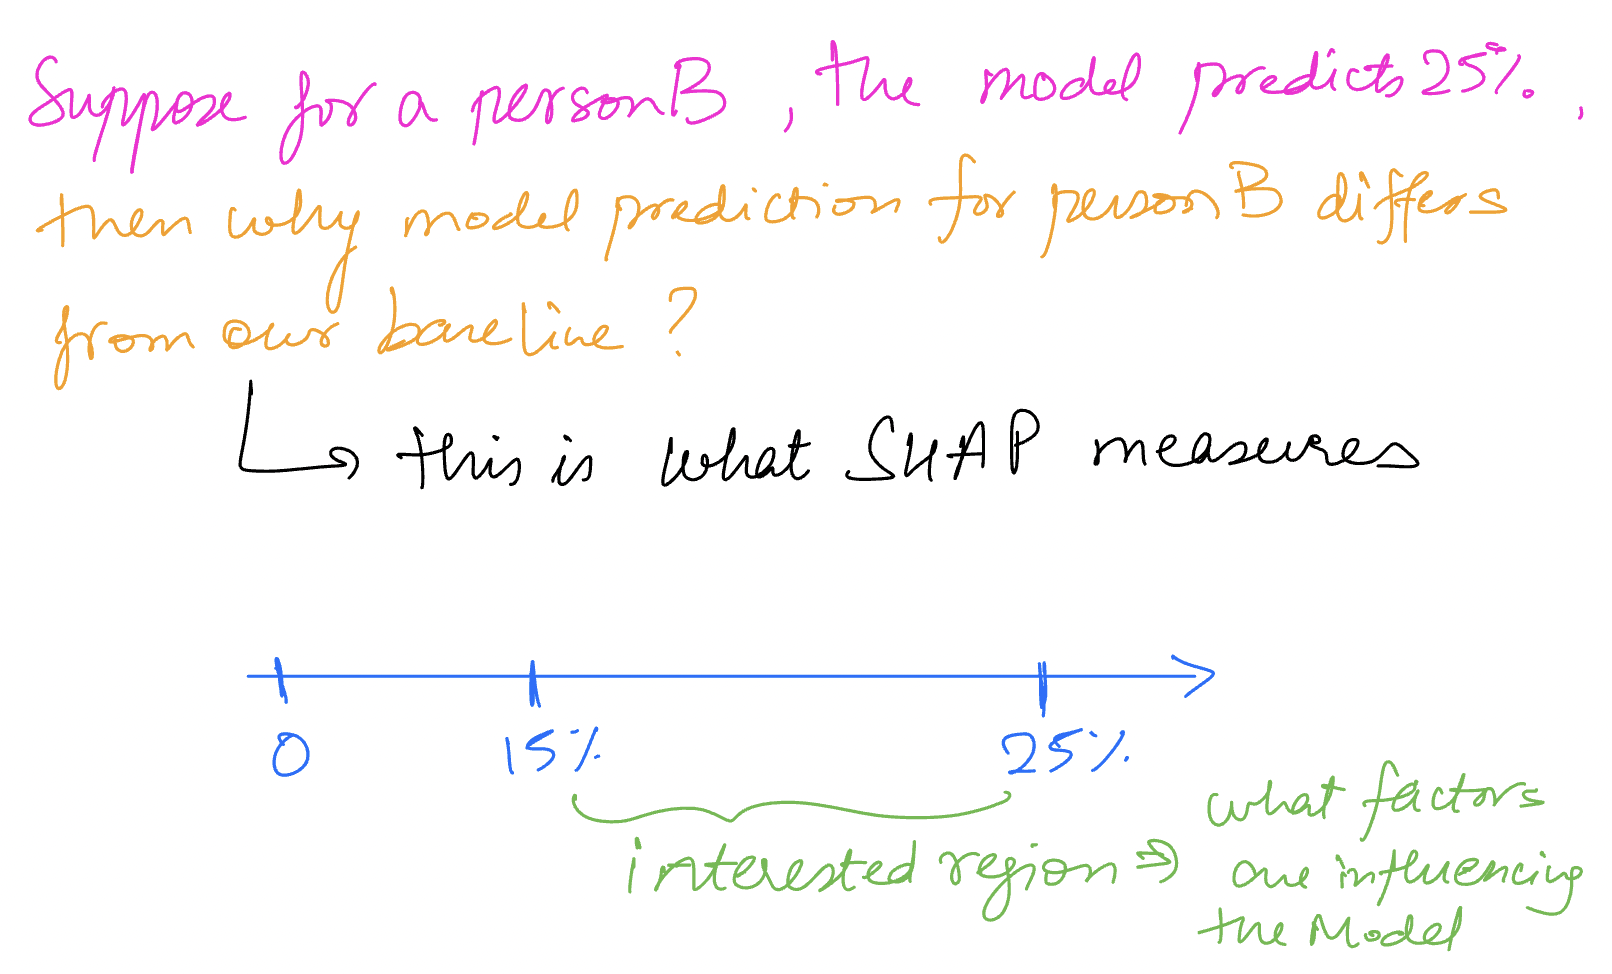 Suppose for a person B, the model predicts 25%.,
then why model prediction for person B differs
from our baseline?
this is what SHAP measures
0 15% 25%.
interested region ⇒ what factors
are influencing
the Model